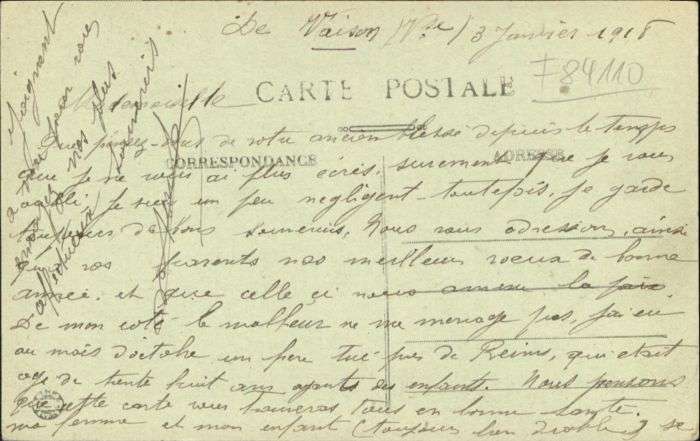 De Vaison Vse / 3 Janvier 1918
F 84110
CARTE POSTALE
Mademoiselle
Que pensez-vous de votre ancien blessé depuis le temps
CORRESPONDANCE
ADRESSE
que je ne vous ai plus écris, surement que je vous
oublie, je suis un peu négligent toutefois, je garde
toujours de bons souvenirs, Nous vous adressons, ainsi
qu'a vos parents nos meilleurs voeux de bonne
année. et que celle ci nous amene la paix
De mon coté le malheur ne me menage pas, j'ai eu
au mois d'octobre un frere tué pres de Reims, qui etait
agé de trente huit ans ayant des enfants. Nous pensons
que cette carte vous trouveras tous en bonne santé.
ma femme et mon enfant (toujours bien diable) se
joignent
a moi pour vous
envoyer nos plus
affectueux souvenirs